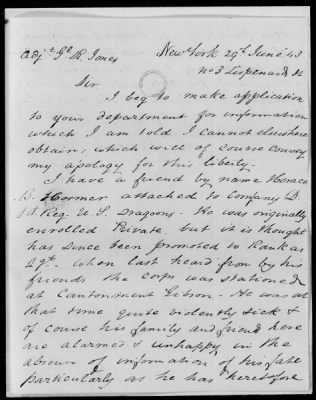 Adjt Gl R. Jones
New York 29th June 43
No 3 Lispenard St
Sir
I beg to make application
to your department for information
which I am told I cannot elsewhere
obtain, which will of course convey
my apology for this liberty.
I have a friend by name Horace
B. attached to Company D
1st Reg. U. S. Dragoons - He was originally
enrolled Private, but it is thought
has since been promoted to Rank as
When last heard from by his
friends the corps was stationed
at Cantonment Gibson - He was at
that time quite violently sick &
of course his family and friend here
are alarmed & unhappy in the
absence of information of his fate
particularly as he has heretofore